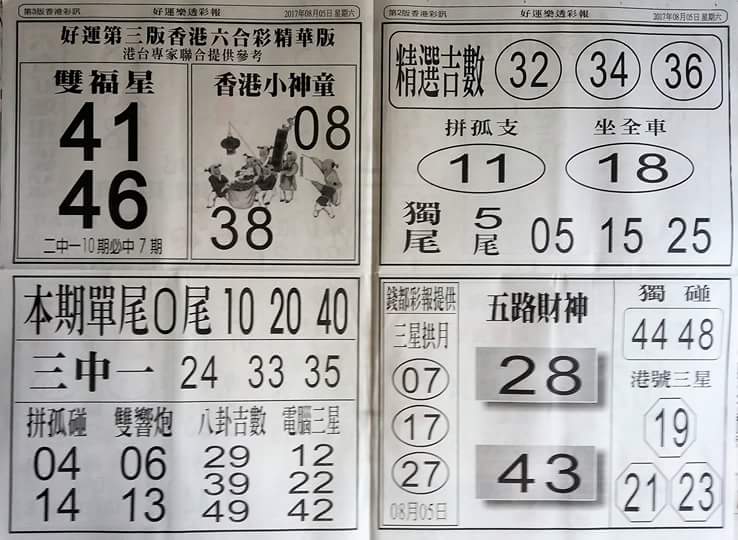 第3版香港彩訊 好運樂透彩報 2017年08月05日 星期六
好運第三版香港六合彩精華版
港台專家聯合提供參考
雙福星
41
46
二中一10期必中7期
香港小神童
08
38
本期單尾0尾 10 20 40
三中一 24 33 35
拼孤碰 雙響炮 八卦吉數 電腦三星
04 06 29 12
14 13 39 22
49 42
第2版香港彩訊 好運樂透彩報 2017年08月05日 星期六
精選吉數 32 34 36
拼孤支 坐全車
11 18
獨尾 5尾 05 15 25
錢都彩報提供
三星拱月
07
17
27
08月05日
五路財神
28
43
獨碰
44 48
港號三星
19
21 23